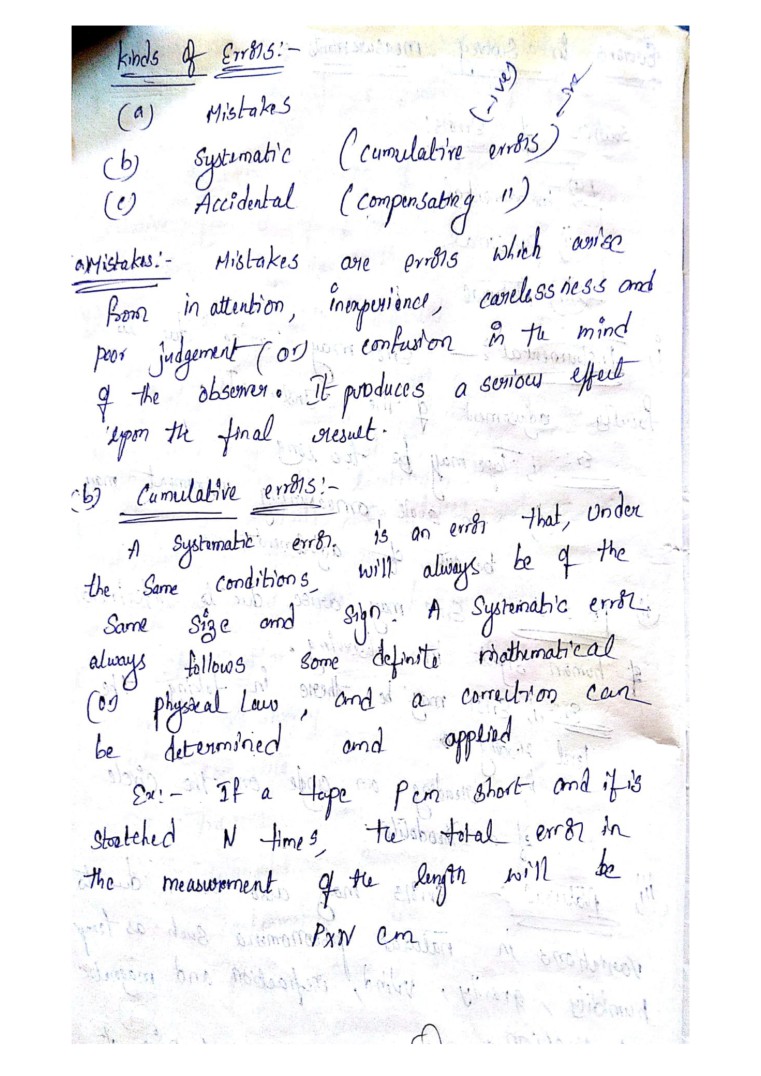 Kinds of Errors:-
(-ive) -ive
(a) Mistakes
(b) Systematic (cumulative errors)
(c) Accidental (compensating ")
a Mistakes:- Mistakes are errors which arise
from in attention, inexperience, carelessness and
poor judgement (or) confusion in the mind
of the observer. It produces a serious effect
upon the final result.
(b) Cumulative errors:-
A Systematic error. is an error that, under
the. Same conditions, will always be of the
Same Size and Sign. A Systematic error
always follows some definite mathematical
(or physical Laws, and a correction can
be determined and applied
Ex:- If a tape P cm short and if is
Stretched N times, the total error in
the measurement of the length will be
P×N cm